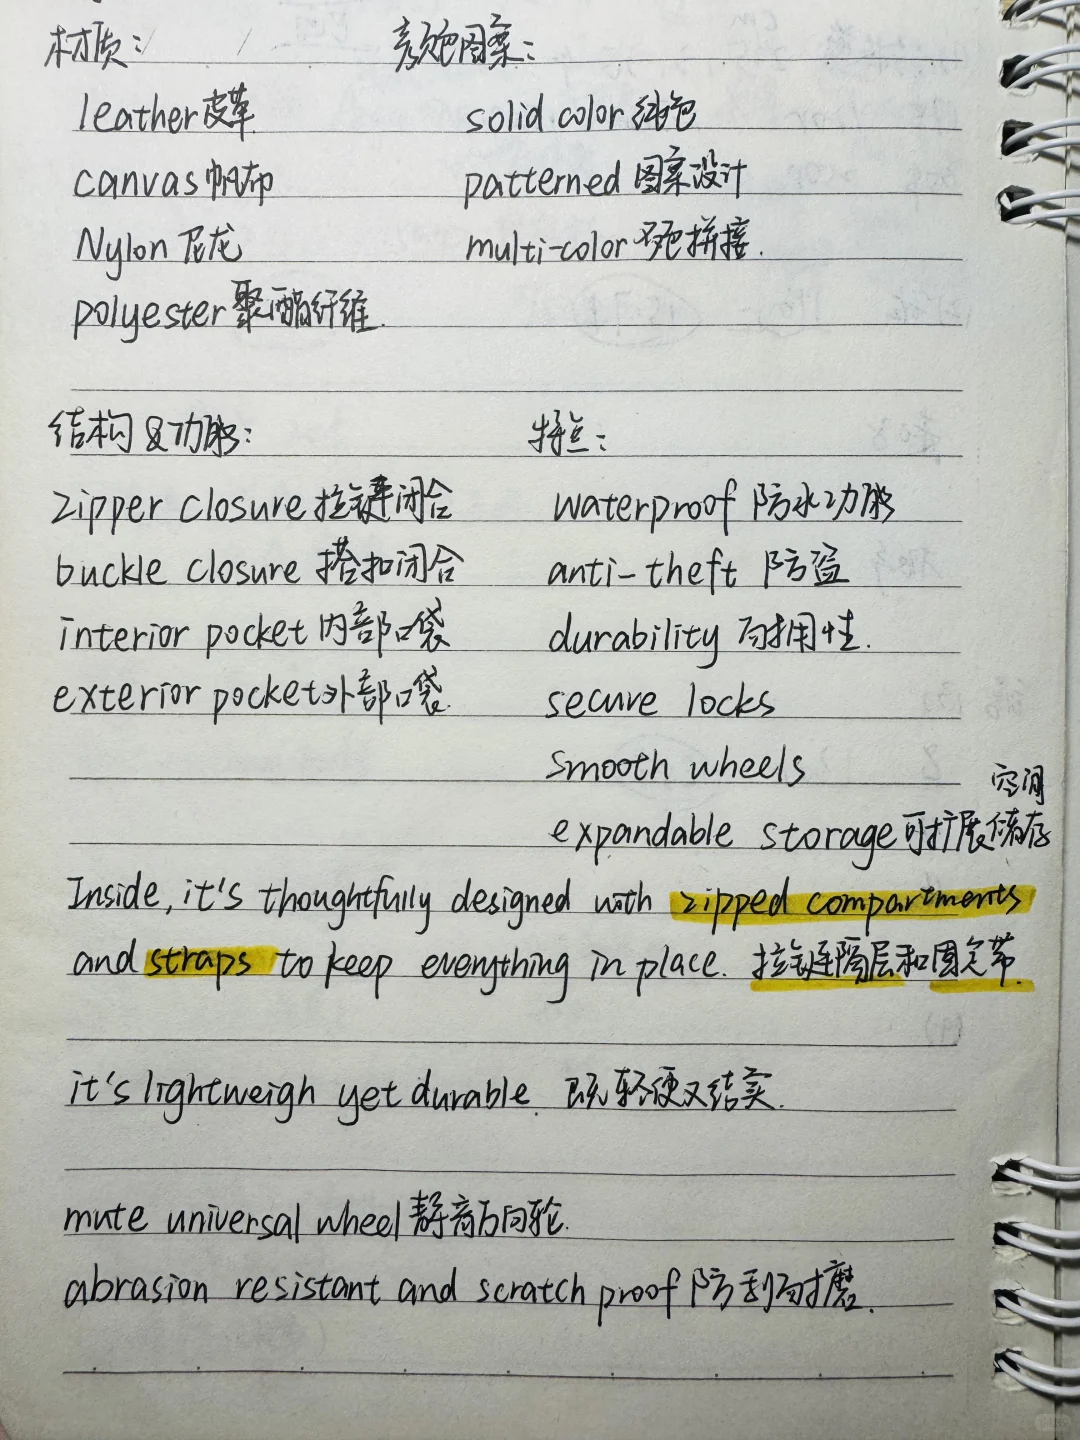 材质: 颜色图案:
leather 皮革 solid color 纯色
canvas 帆布 patterned 图案设计
Nylon 尼龙 multi-color 多色拼接.
polyester 聚酯纤维.
结构&功能: 特点:
zipper closure 拉链闭合 waterproof 防水功能
buckle closure 搭扣闭合 anti-theft 防盗
interior pocket 内部口袋 durability 耐用性.
exterior pocket 外部口袋. secure locks
smooth wheels
空间
expandable storage 可扩展储存
Inside, it's thoughtfully designed with zipped compartments
and straps to keep everything in place. 拉链隔层和固定带.
it's lightweigh yet durable. 既轻便又结实.
mute universal wheel 静音万向轮.
abrasion resistant and scratch proof 防刮耐磨.